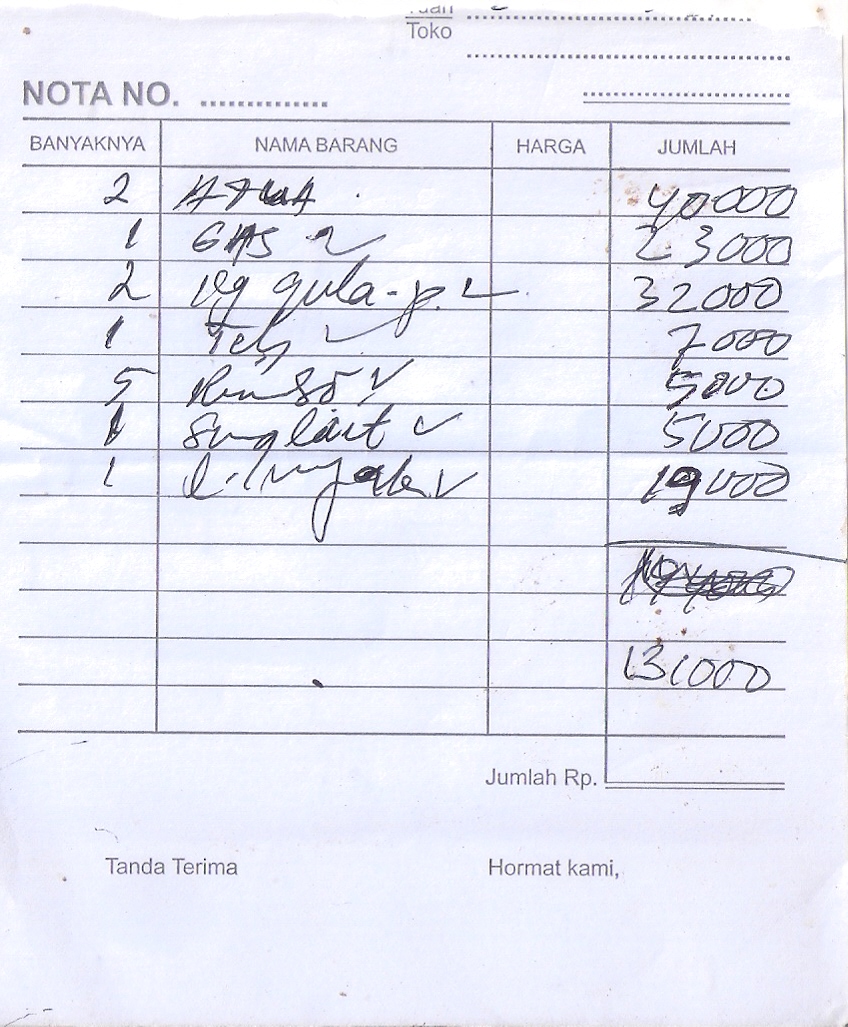 Tuan
Toko
NOTA NO.
BANYAKNYA NAMA BARANG HARGA JUMLAH
2 AQUA 40000
1 GAS 23000
2 kg gula-p. 32000
1 Teh 7000
5 Rinso 5000
1 Sunglait 5000
1 l. Minyak 19000
131000
Jumlah Rp.
Tanda Terima Hormat kami,